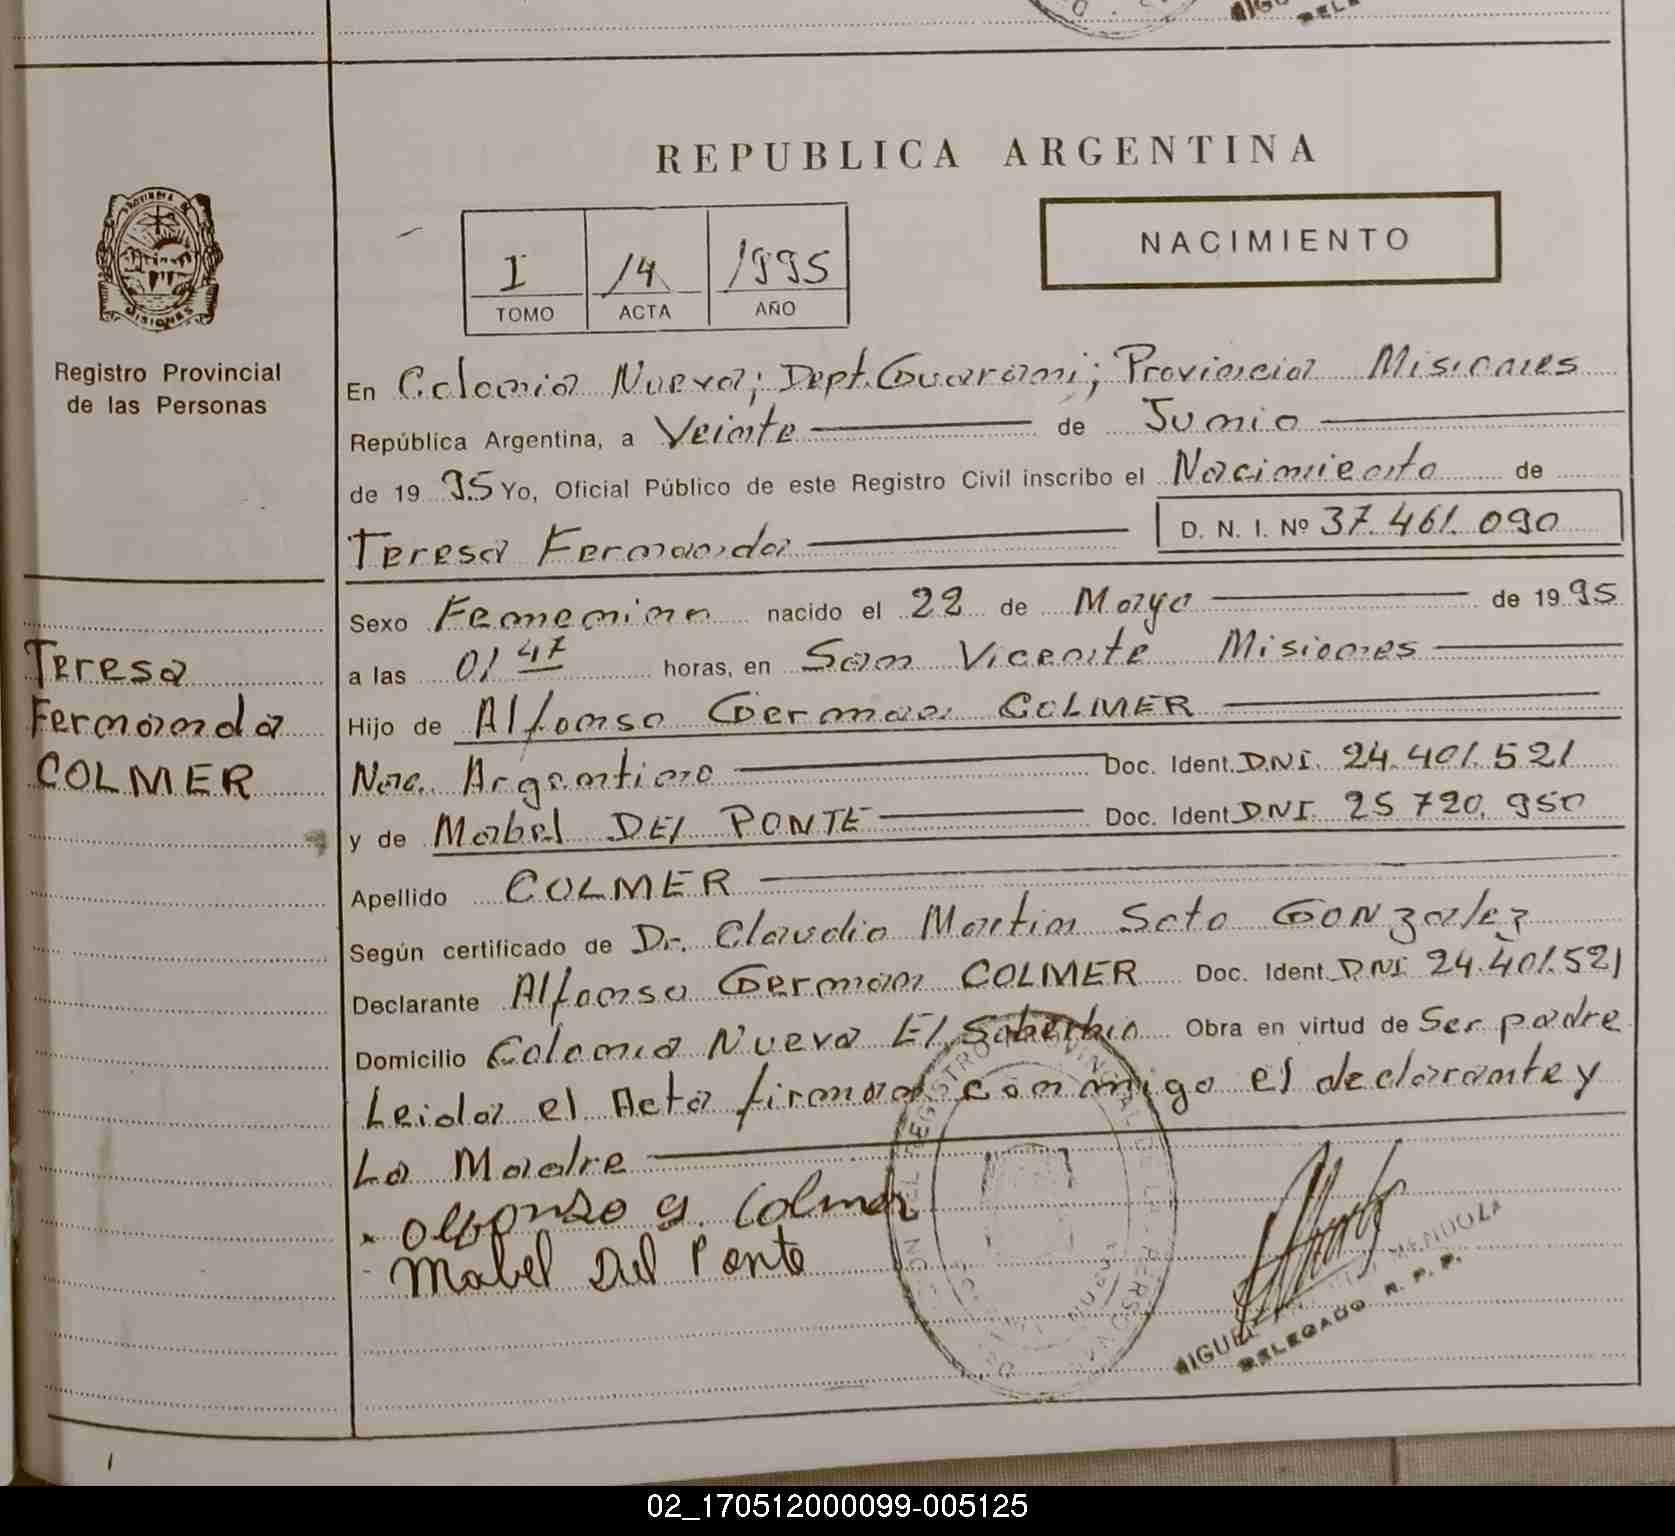 REPUBLICA ARGENTINA
NACIMIENTO
I 14 1995
TOMO ACTA AÑO
MISIONES
Registro Provincial
de las Personas
En Colonia Nueva; Dept. Guarani; Provincia Misiones
República Argentina, a Veinte de Junio
de 19 95 Yo, Oficial Público de este Registro Civil inscribo el Nacimiento de
Teresa Fernanda D. N. I. Nº 37.461.090
Sexo Femenino nacido el 22 de Mayo de 19 95
a las 01 47 horas, en San Vicente Misiones
Teresa
Fernanda
COLMER
Hijo de Alfonso German COLMER
Nac. Argentino Doc. Ident. DNI. 24.401.521
y de Mabel DEL PONTE Doc. Ident DNI. 25 720.950
Apellido COLMER
Según certificado de Dr. Claudio Martin Soto GONzalez
Declarante Alfonso German COLMER Doc. Ident. DNI 24.401.521
Domicilio Colonia Nueva El Soberbio Obra en virtud de Ser padre
Leida el Acta firman conmigo el declarante y
La Madre
Alfonso G. Colmer
Mabel Del Ponte
MIGUEL MENDOZA
DELEGADO R. P. P.
02_170512000099-005125